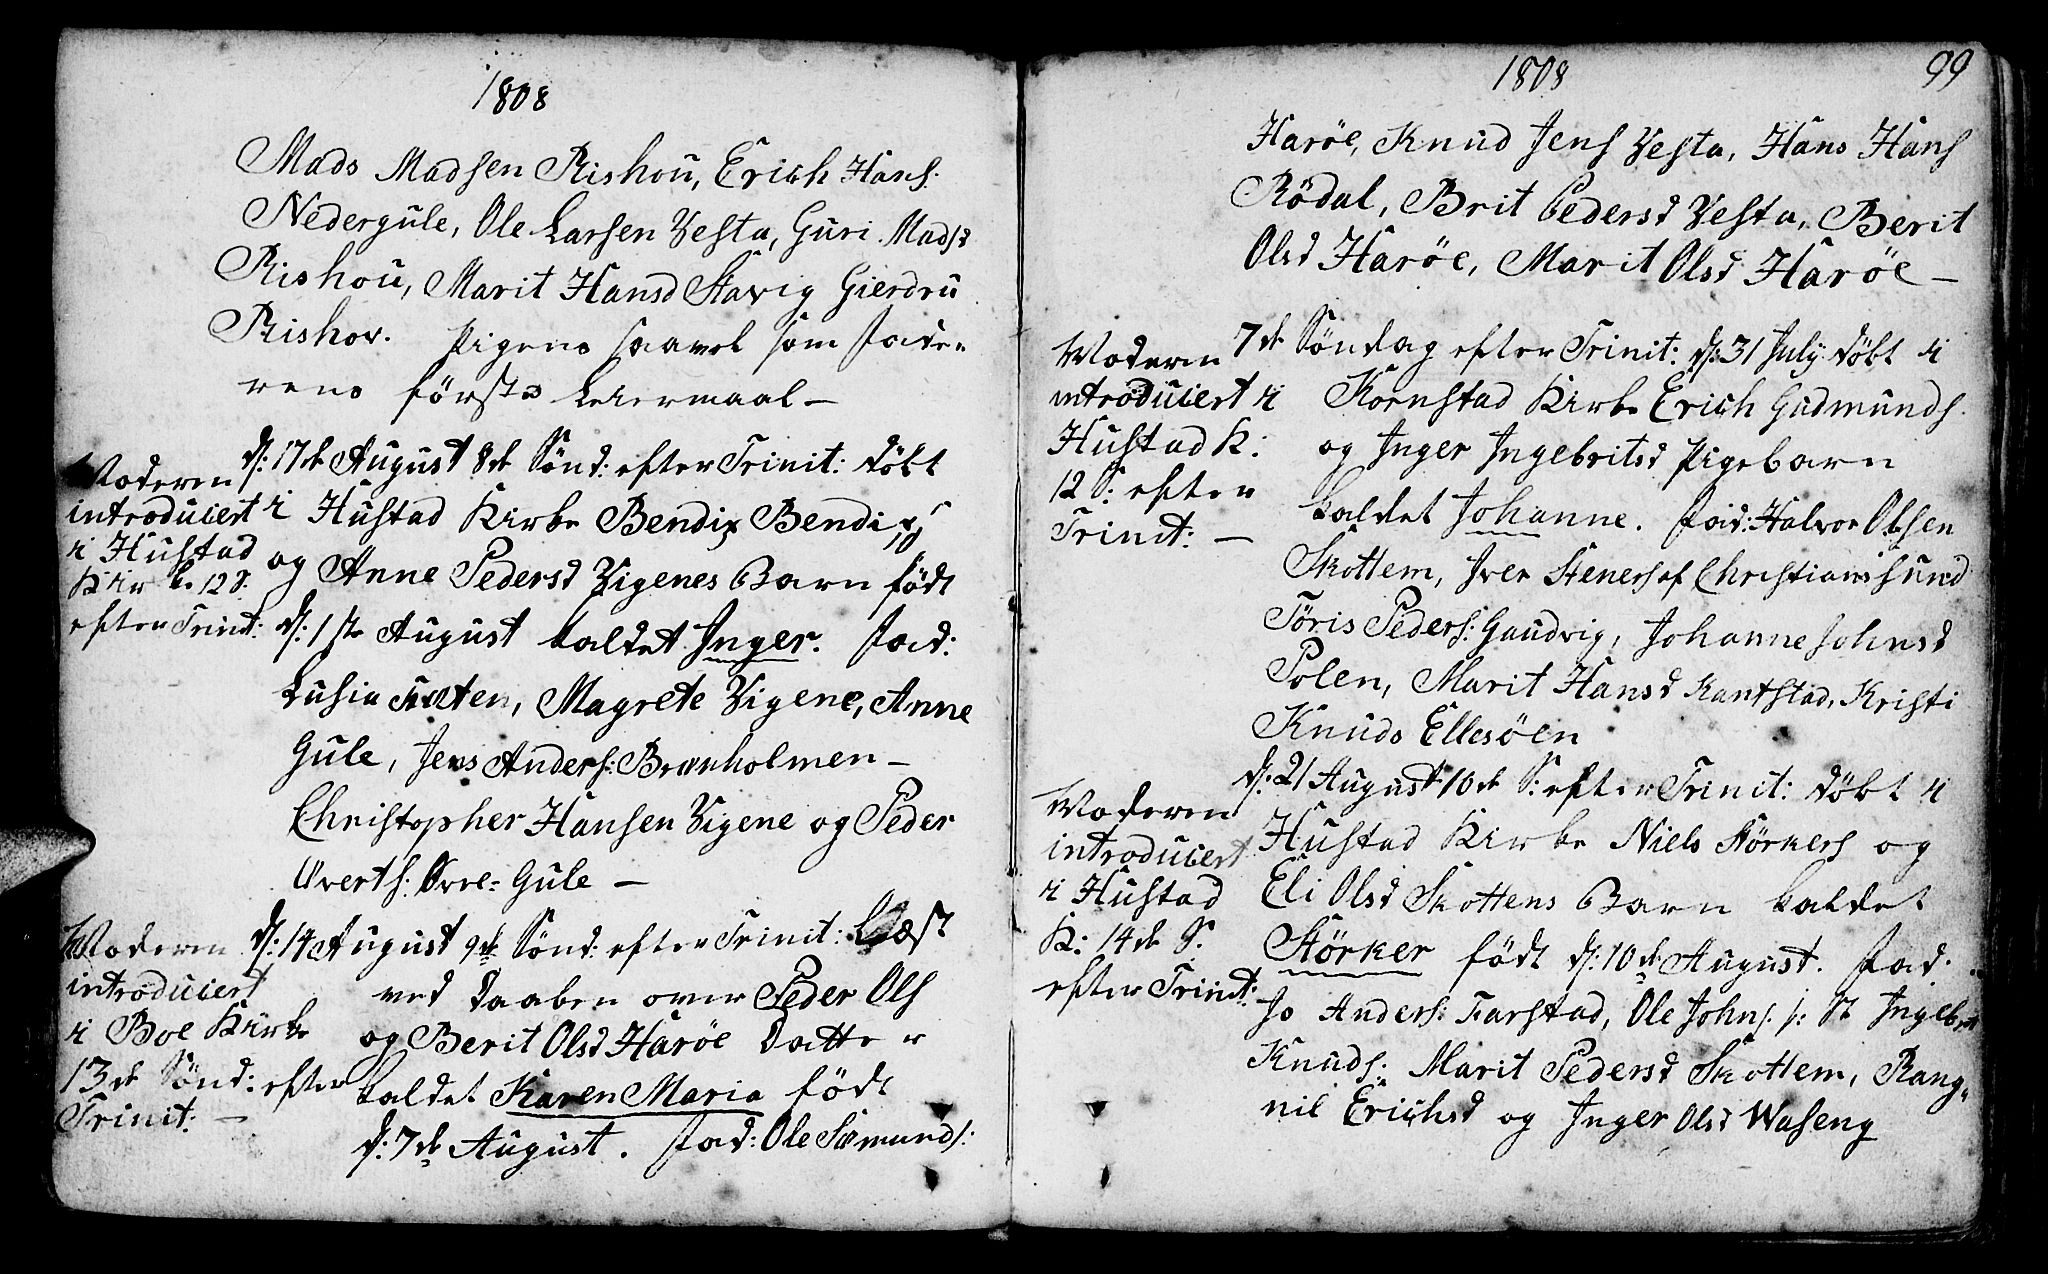 1808
Mads Madsen Rishou, Erich Hans:
Nedergule, Ole Larsen Vesta, Guri Madsd
Rishou, Marit Hansd Stavig Gierdru
Rishov. Pigens saavel som Fade-
rens første Leiermaal –
Moderen
introduciert
i Hustad
Kirke 12 S:
efter Trinit:
d: 17de August 8de Sönd: efter Trinit: døbt
i Hustad Kirke Bendix Bendixs
og Anne Pedersd Vigenes Barn født
d: 1ste August kaldet Inger. Fad:
Lusia Tixten, Magrete Vigene, Anne
Gule, Jens Anders: Brænholmen –
Christopher Hansen Vigene og Peder
Iverts: Øvre=Gule –
Moderen
introduciert
i Boe Kirke
13de Sönd: efter
Trinit: –
d: 14 August 9de Sönd: efter Trinit: Læst
ved Daaben over Peder Ols
og Berit Olsd Harøe Datter
kaldet Karen Maria født
d: 7de August. Fad: Ole Sæmunds:
1808
99
Harøe, Knud Jens Vesta, Hans Hans
Rödal, Brit Pedersd Vesta, Berit
Olsd Harøe, Marit Olsd Harøe –
Moderen
introduciert i
Hustad K:
12 S: efter
Trinit: –
7de Söndag efter Trinit: d: 31 July døbt i
Kornstad Kirke Erich Gudmunds.
og Inger Ingebritsd Pigebarn
kaldet Johanne. Fad: Halvor Olsen
Skottem, Iver Steners af Christiansund
Töris Peders: Gaudvig, Johanne Johnsd
Polen, Marit Hansd Kantstad, Kristi
Knuds Ellesöen
Moderen
introduciert
i Hustad
K: 14de S.
efter Trinit:
d: 21 August 10de S: efter Trinit: döbt i
Hustad Kirke Niels Störkers og
Eli Olsd Skottens Barn kaldet
Störker födt d: 10de August. Fad.
Jo Anders: Farstad, Ole Johns. Ingebr
Knuds: Marit Pedersd Skottem, Rang-
nil Erichsd og Inger Olsd Waseng